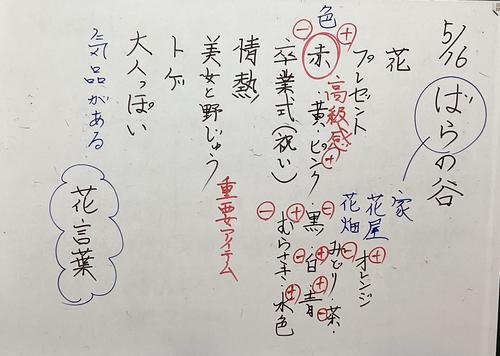 5/16
ばらの谷
家
花屋
花畑
花
プレゼント
色
⊕ ⊖
赤・黄・ピンク・黒・
高級感⊕
⊖
⊕
オレンジ
⊖
みどり・茶・
⊕ ⊖
白・青・
⊕ ⊖
むらさき・水色
⊕
卒業式(祝い)
情熱
美女と野じゅう
重要アイテム
トゲ
大人っぽい
気品がある
花言葉